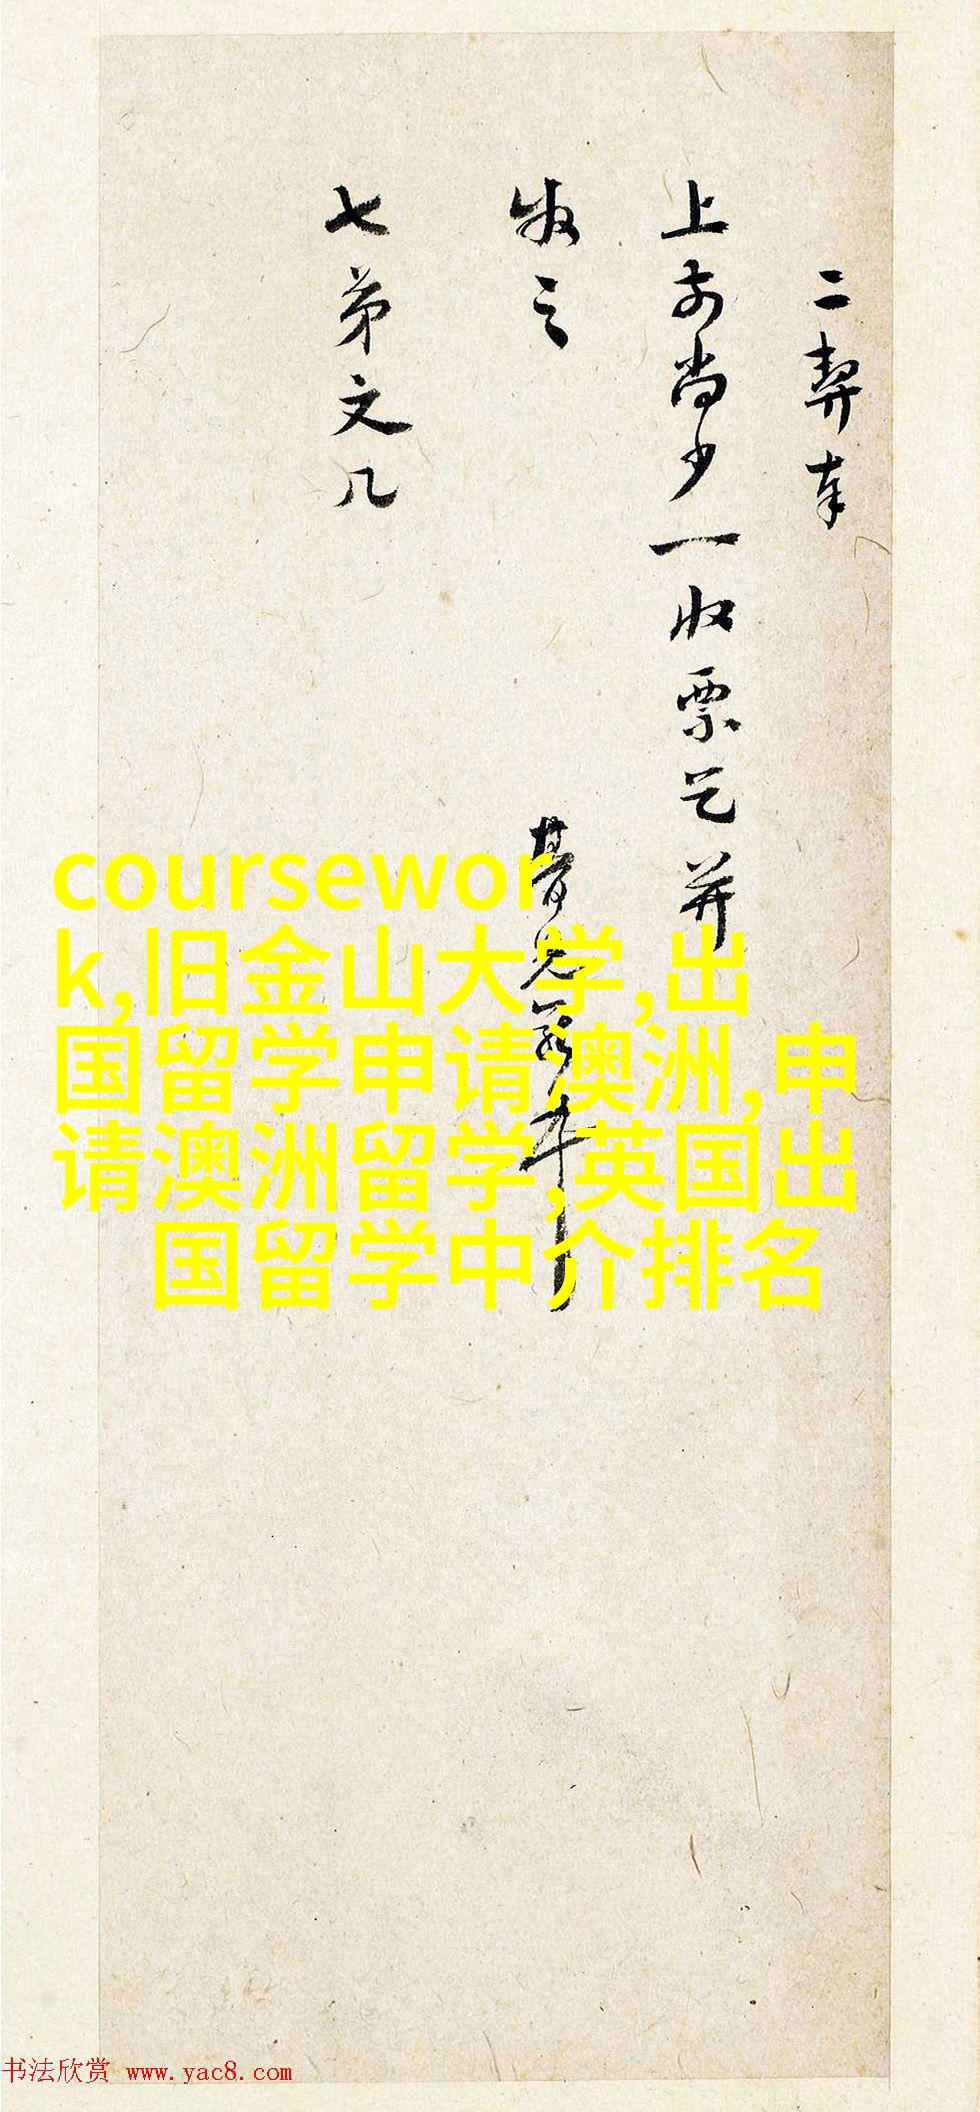 二契奉
上前尚少一收票乞并
收之
七弟文几
coursewor
k,旧金山大学,出
国留学申请澳洲,申
请澳洲留学,英国出
国留学中介排名
书法欣赏 www.yac8.com